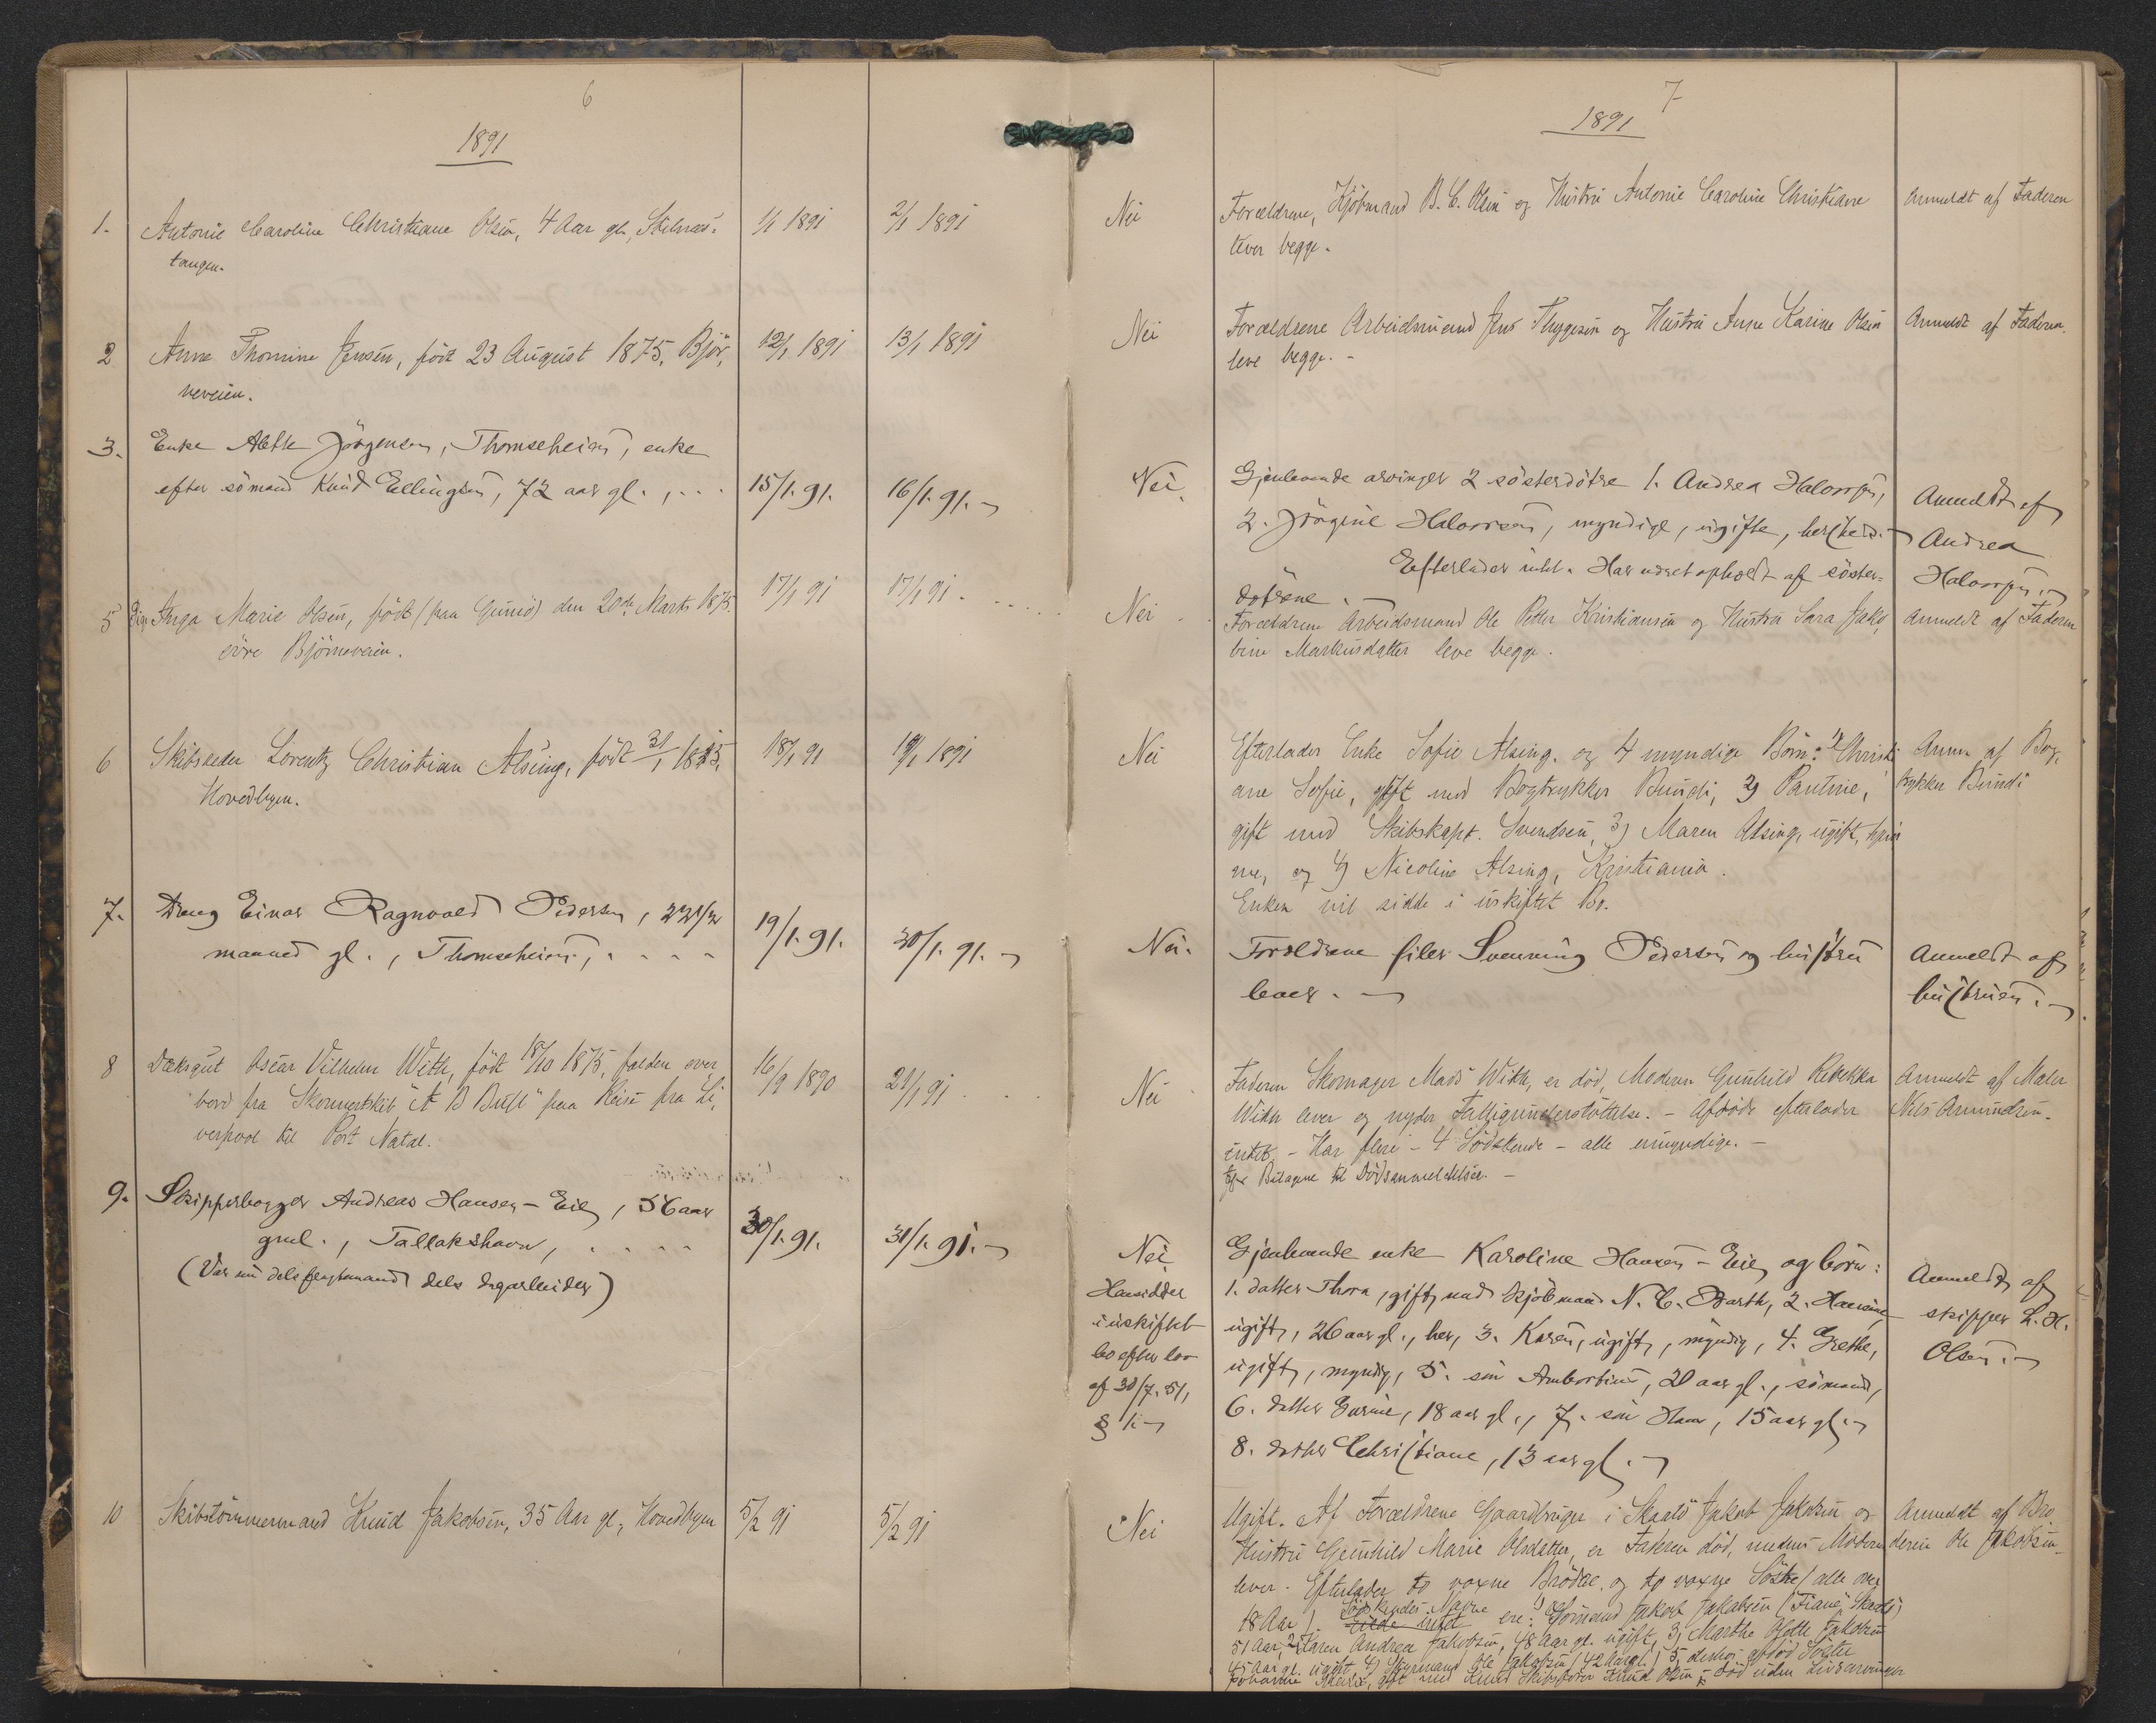 6
1891
1. Antonie Caroline Christiane Olsen, 4 Aar gl., Stilnæs-
tangen.
1/1 1891
2/1 1891
2 Anne Thomine Jensen, född 23 August 1875, Bjør,
neveien.
12/1 1891
13/1 1891
3. Enke Alette Jørgensen, Thomseheien, enke
efter sömand Knud Ellingsen, 72 aar gl., . . .
15/1. 91.
16/1. 91.
5 Pige Inga Marie Olsen, född (paa Gumö) den 20de Marts 1875.
övre Björneveien.
17/1 91
17/1 91
6 Skibsreder Lorentz Christian Alsing, född 31/1 1815,
Hovedbyen.
18/1 91
19/1 1891
7. Dreng Einar Ragnvald Pedersen, 22 1/2
maaned gl., Thomseheien, . . . .
19/1. 91.
30/1. 91.
8 Dæksgut Oscar Vilhelm With, född 18/10 1875, falden over
bord fra Skonnertskib "A B Bull" paa Reise fra Li,
verpool til Port Natal.
16/9 1890
21/1 91
9. Skipperborger Andreas Hansen-Eie, 56 aar
gml., Tallakshavn, . . . .
(Var nu dels fragtemand dels dagarbeider)
30/1. 91.
31/1. 91.
10 Skibstömmermand Knud Jakobsen, 35 Aar gl., Hovedbyen
5/2 91
5/2 91
7
1891
Nei
Forældrene, Kjöbmand B. C. Olsen og Hustru Antonie Caroline Christiane
lever begge.
Anmeldt af Faderen
Nei
Forældrene Arbeidsmand Jens Thygesen og Hustru Anne Karine Olsen
leve begge. -
Anmeldt af Faderen.
Nei.
Gjenlevende arvinger 2 søsterdøtre 1. Andrea Halvorsen,
2. Jörgine Halvorsen, myndige, ugifte, her
Efterlader intet. Har været opholdt af söster-
døtrene.
Anmeldt af
Andrea
Halvorsen.
Nei
Forældrene Arbeidsmand Ole Petter Kristiansen og Hustru Sara Jako,
bine Markusdatter leve begge.
Anmeldt af Faderen
Nei
Efterlader Enke Sofie Alsing. og 4 myndige Børn: 1) Christi
ane Sofie, gift med Bogtrykker Bundi, 2) Pauline,
gift med Skibskapt. Svendsen, 3) Maren Alsing, ugift, hjem
me, og 4) Nicoline Alsing, Kristiania.
Enken vil sidde i uskiftet Bo.
Anm. af Bog,
trykker Bundi
Nei.
Forældrene filer Svenning Pedersen og hustru
lever.
Anmeldt af
hustruen.
Nei
Faderen Skomager Mads With, er død, Moderen Gunhild Rebekka
With lever og nyder Fattigunderstöttelse. - Afdøde efterlader
intet. - Har flere - 4 Södskende - alle umyndige. -
Bilagene til Dødsanmeldelsen. -
Anmeldt af Maler
Nils Amundsen.
Nei.
Hensidder
i uskiftet
bo efter lov
af 30/7. 51,
§ 1.
Gjenlevende enke Karoline Hansen-Eie, og børn:
1. datter Thora, gift med kjøbmand N. C. Barth, 2. Hansine
ugift, 26 aar gl., her, 3. Karen, ugift, myndig, 4. Grethe,
ugift, myndig, 5. sön Ambortius, 20 aar gl., sömand,
6. datter Gurine, 18 aar gl., 7. sön Hans, 15 aar gl.
8. datter Christiane, 13 aar gl.
Anmeldt af
skipper L. H.
Olsen.
Nei
Ugift. Af Forældrene Gaardbruger i Skaatö Jakob Jakobsen og
Hustru Gunhild Marie Olsdatter, er Faderen død, medens Moderen
lever. Efterlader to voxne Brödre og to voxne Söstre (alle over
18 Aar). Södskendes Navne ere: 1) Sömand Jakob Jakobsen ("Fiane" Skaatö)
51 Aar, 2) Karen Andrea Jakobsen, 48 Aar gl. ugift, 3) Marthe Olette Jakobsen
45 Aar gl. ugift 4) Styrmand Ole Jakobsen (42 Aar gl.) 5) desuden afdød Söster
gift med Skibsfører Knud Olsen - død uden Livsarvinger
Anmeldt af Bro
deren Ole Jakobsen